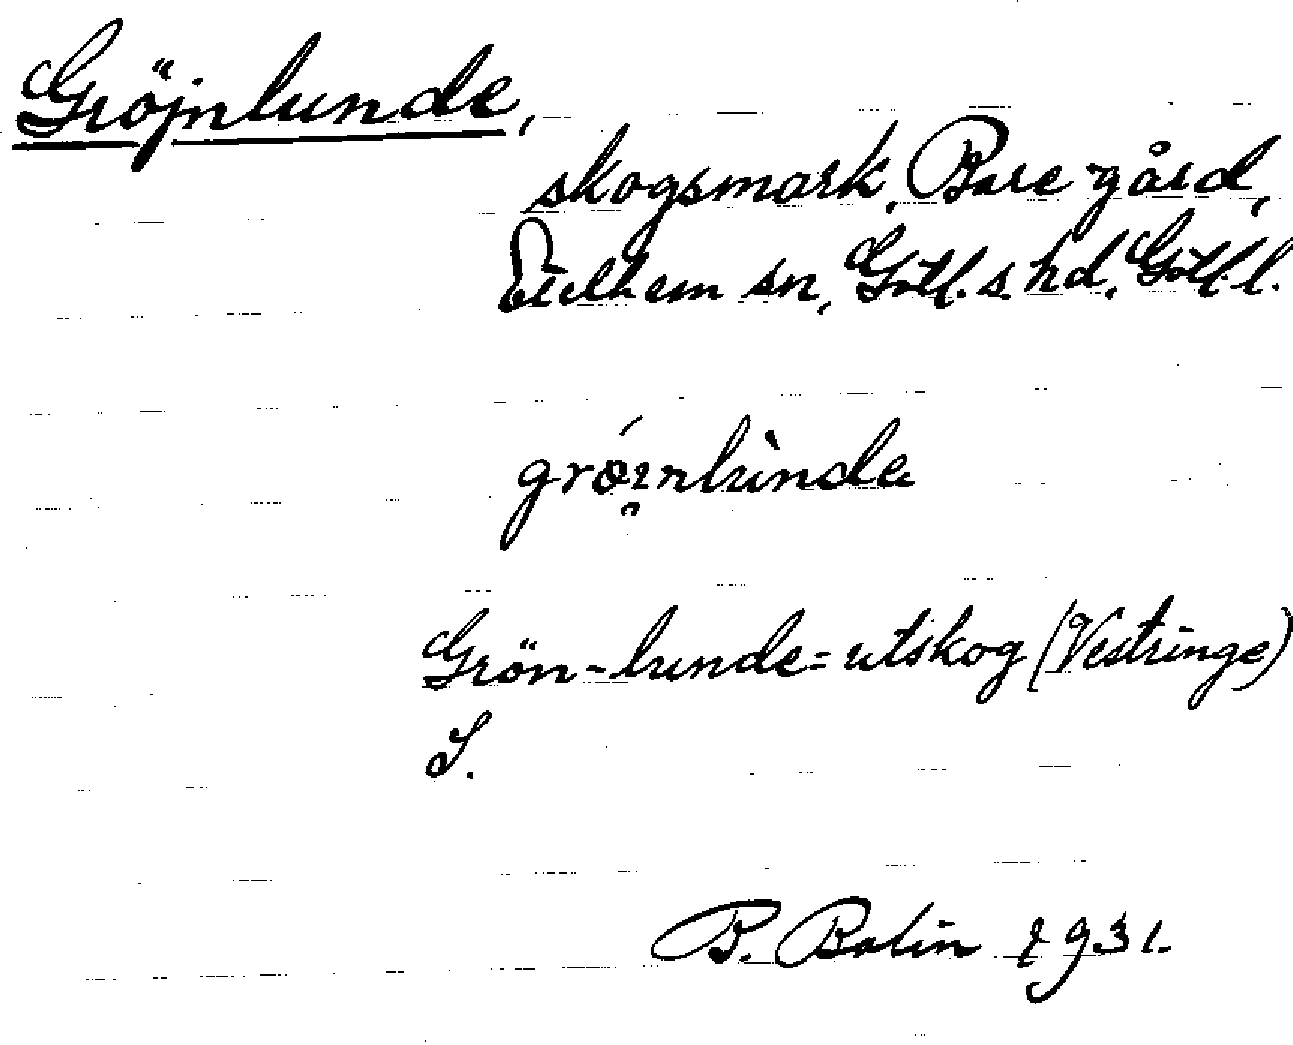 Gröjnlunde,
skogsmark, Bare gård,
Etelhem sn, Gotl. s. hd, Gotl. l.
grǿi̯nlùnde
Grön-lunde = utskog (Vestringe)
S.
B. Bolin 1931.